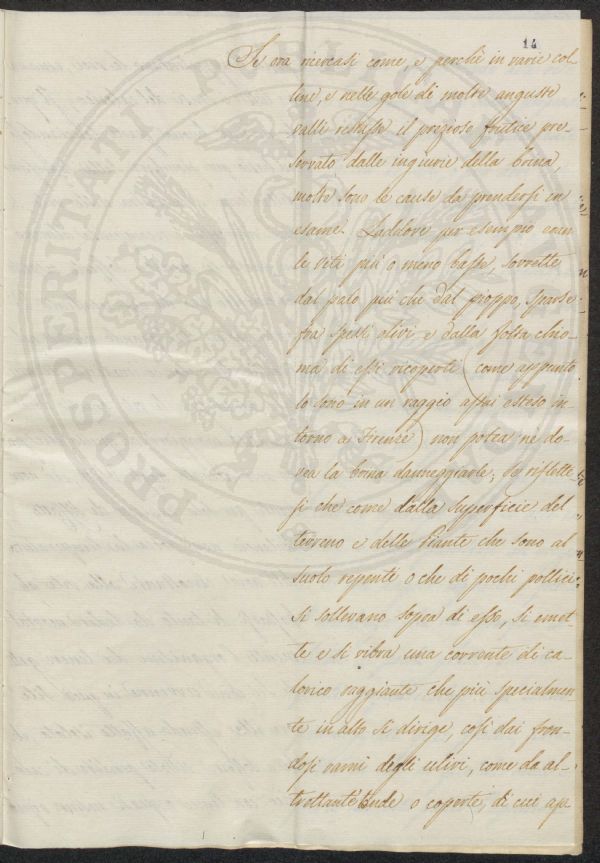 14
Se ora ricercasi come, e perchè in varie col-
line, e nelle gole di molte anguste
valli restasse il prezioso frutice pre-
servato dalle ingiurie della brina,
molte sono le cause da prendersi in
esame. Laddove per esempio eran
le viti più o meno basse, sorrette
dal palo più che dal pioppo, sparse
fra spessi olivi e dalla folta chio-
ma di essi ricoperti (come appunto
lo sono in un raggio assai esteso in-
torno a Firenze) non potea nè do-
vea la brina danneggiarle; da riflette-
si che come dalla superficie del
terreno e delle Piante che sono al
suolo repenti o che di pochi pollici
si sollevano sopra di esso, si emet-
te e si vibra una corrente di ca-
lorico raggiante che più specialmen-
te in alto si dirige, così dai fron-
dosi rami degli ulivi, come da al-
trettante tende o coperte, di cui apu
PROSPERITATI PUBLICAE AUGENDAE